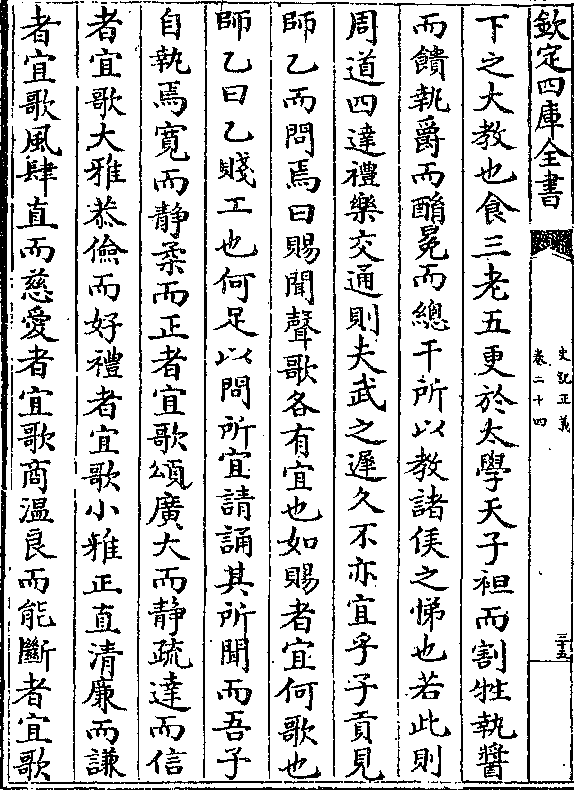 欽定四庫全書
史記正義
卷二十四
三十五
下之大教也食三老五更於太學天子袒而割牲執醬
而饋執爵而酳冕而總干所以教諸侯之悌也若此則
周道四達禮樂交通則夫武之遲久不亦宜乎子貢見
師乙而問焉曰賜聞聲歌各有宜也如賜者宜何歌也
師乙曰乙賤工也何足以問所宜請誦其所聞而吾子
自執焉寬而静柔而正者宜歌頌廣大而静疏達而信
者宜歌大雅恭儉而好禮者宜歌小雅正直清廉而謙
者宜歌風肆直而慈愛者宜歌商温良而能斷者宜歌